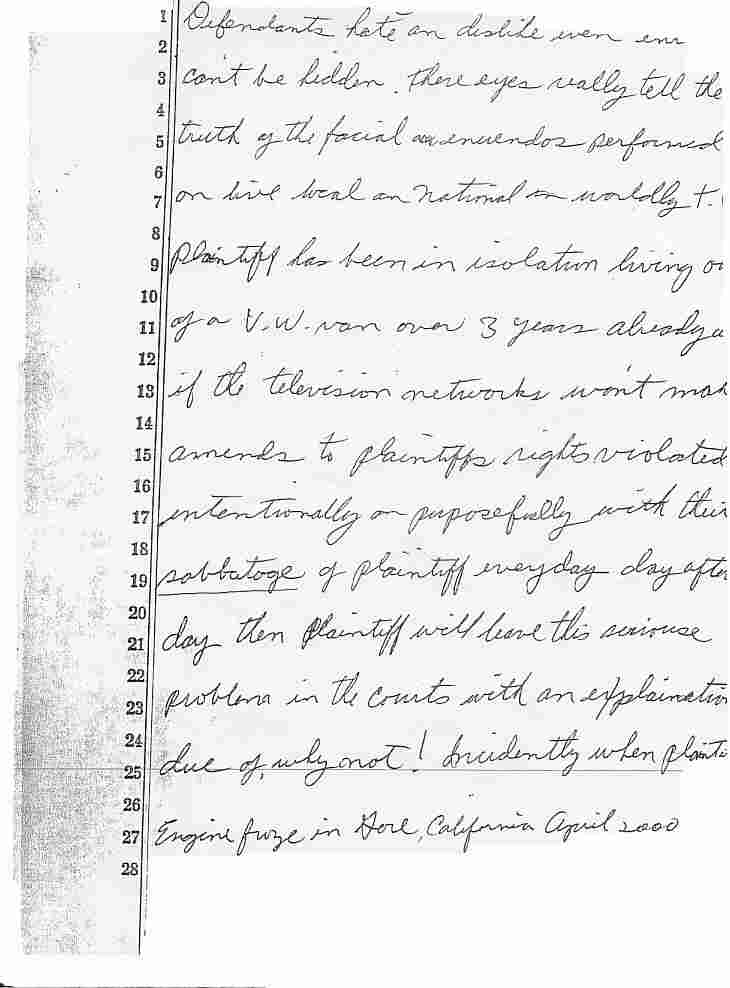 1 Defendants hate an dislike even env
2
3 can't be hidden. there eyes really tell the
4
5 truth of the facial enuendos performed
6
7 on live local an National worldly t.
8
9 Plaintiff has been in isolation living ou
10
11 of a V.W. van over 3 years already a
12
13 if the television networks won't mak
14
15 amends to plaintiffs rights violated
16
17 intentionally or purposefully with their
18
19 sabbatoge of plaintiff everyday day after
20
21 day then Plaintiff will leave this seriouse
22
23 problem in the courts with an explaination
24
25 due of, why not! Incidently when plainti
26
27 Engine froze in California April 2000
28